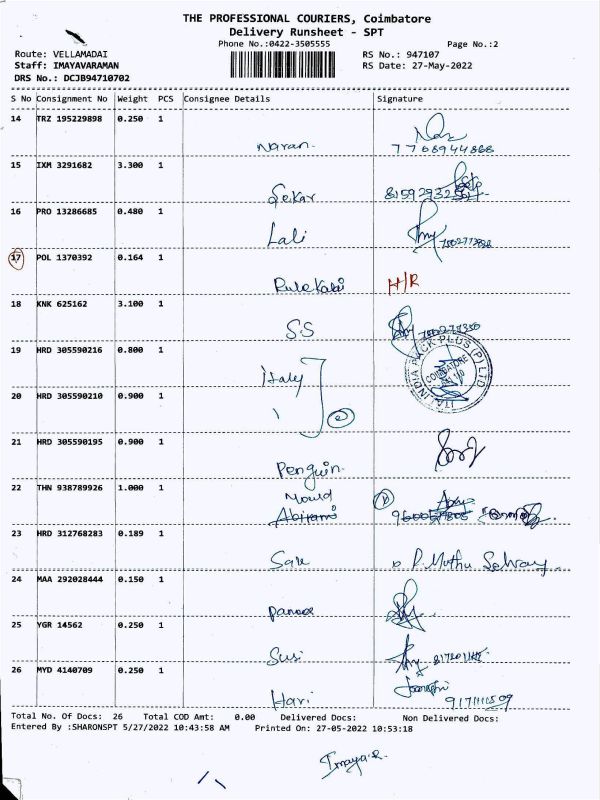 THE PROFESSIONAL COURIERS, Coimbatore
Delivery Runsheet - SPT
Phone No.:0422-3505555 Page No.:2
Route: VELLAMADAI RS No.: 947107
Staff: IMAYAVARAMAN RS Date: 27-May-2022
DRS No.: DCJB94710702
S No Consignment No Weight PCS Consignee Details Signature
14 TRZ 195229898 0.250 1
Naran.
15 IXM 3291682 3.300 1
Sekar
16 PRO 13286685 0.480 1
Lali
17 POL 1370392 0.164 1
H/R
18 KNK 625162 3.100 1
SS
19 HRD 305590216 0.800 1
Italy
ITAL INDIA PACK PLUS (P) LTD
COIMBATORE
20 HRD 305590210 0.900 1
2
21 HRD 305590195 0.900 1
Penguin.
22 THN 938789926 1.000 1
Mould
Abirami
23 HRD 312768283 0.189 1
P. Muthu Selvam
24 MAA 292028444 0.150 1
25 YGR 14562 0.250 1
Susi
26 MYD 4140709 0.250 1
Hari
Total No. Of Docs: 26 Total COD Amt: 0.00 Delivered Docs: Non Delivered Docs:
Entered By :SHARONSPT 5/27/2022 10:43:58 AM Printed On: 27-05-2022 10:53:18
Imaya.R.